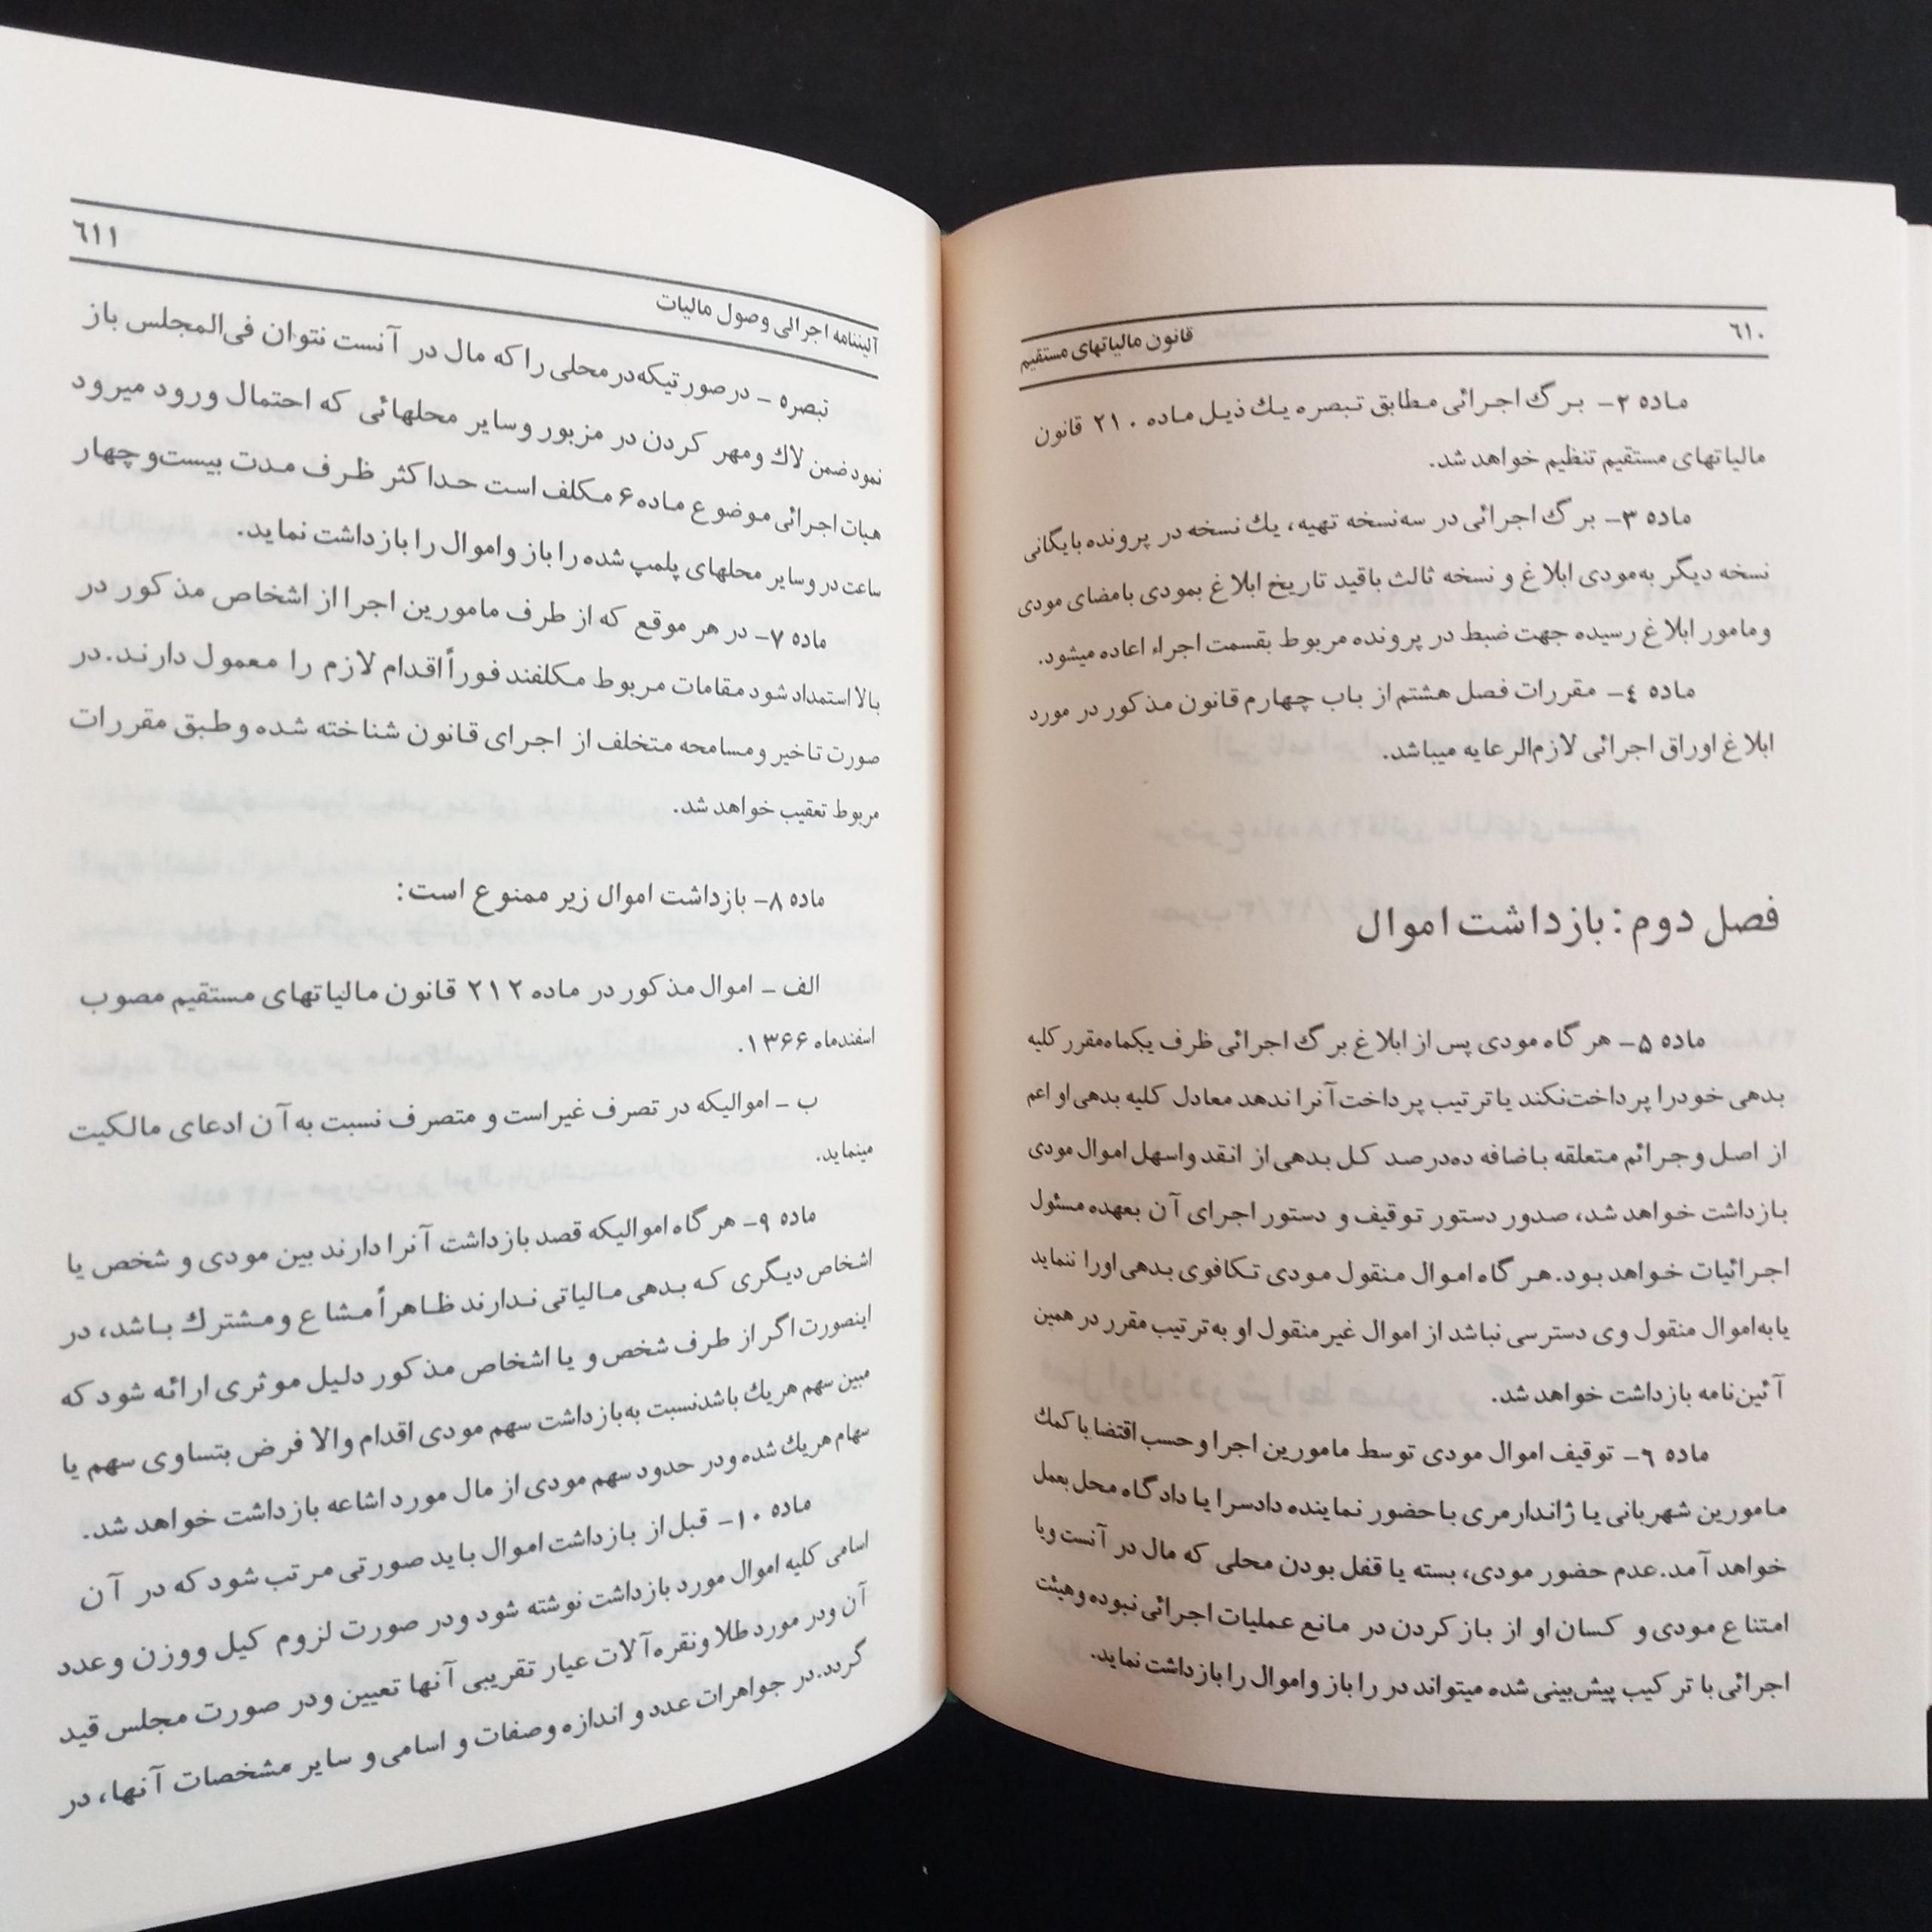 ٦١٠
قانون مالیاتهای مستقیم
ماده ۲ـ برگ اجرائی مطابق تبصره یك ذیل ماده ۲۱۰ قانون
مالیاتهای مستقیم تنظیم خواهد شد.
ماده ۳ـ برگ اجرائی در سه‌نسخه تهیه، یك نسخه در پرونده بایگانی
نسخه دیگر به‌مودی ابلاغ و نسخه ثالث باقید تاریخ ابلاغ بمودی بامضای مودی
ومامور ابلاغ رسیده جهت ضبط در پرونده مربوط بقسمت اجراء اعاده میشود.
ماده ٤ـ مقررات فصل هشتم از باب چهارم قانون مذکور در مورد
ابلاغ اوراق اجرائی لازم‌الرعایه میباشد.
فصل دوم: بازداشت اموال
ماده ۵ـ هرگاه مودی پس از ابلاغ برگ اجرائی ظرف یکماه‌مقرر کلیه
بدهی خودرا پرداخت‌نکند یا ترتیب پرداخت‌آنرا ندهد معادل کلیه بدهی او اعم
از اصل و جرائم متعلقه باضافه ده‌درصد کل بدهی از انقد و اسهل اموال مودی
بازداشت خواهد شد، صدور دستور توقیف و دستور اجرای آن بعهده مسئول
اجرائیات خواهد بود. هرگاه اموال منقول مودی تکافوی بدهی اورا ننماید
یا به‌اموال منقول وی دسترسی نباشد از اموال غیر منقول او به‌ترتیب مقرر در همین
آئین‌نامه بازداشت خواهد شد.
ماده ٦ـ توقیف اموال مودی توسط مامورین اجرا و حسب اقتضا با کمك
مامورین شهربانی یا ژاندارمری با حضور نماینده دادسرا یا دادگاه محل بعمل
خواهد آمد. عدم حضور مودی، بسته یا قفل بودن محلی که مال در آنست ویا
امتناع مودی و کسان او از باز کردن در مانع عملیات اجرائی نبوده وهیئت
اجرائی با ترکیب پیش‌بینی شده میتواند در را باز و اموال را بازداشت نماید.
٦١١
آئیننامه اجرائی وصول مالیات
تبصره ـ درصورتیکه‌در محلی را که مال در آنست نتوان فی‌المجلس باز
نمود ضمن لاك ومهر کردن در مزبور وسایر محلهائی که احتمال ورود میرود
هیات اجرائی موضوع ماده ۶ مکلف است حداکثر ظرف مدت بیست‌وچهار
ساعت در وسایر محلهای پلمپ شده را باز و اموال را بازداشت نماید.
ماده ۷ـ در هر موقع که از طرف مامورین اجرا از اشخاص مذکور در
بالا استمداد شود مقامات مربوط مکلفند فوراً اقدام لازم را معمول دارند. در
صورت تاخیر و مسامحه متخلف از اجرای قانون شناخته شده و طبق مقررات
مربوط تعقیب خواهد شد.
ماده ۸ـ بازداشت اموال زیر ممنوع است:
الف ـ اموال مذکور در ماده ۲۱۲ قانون مالیاتهای مستقیم مصوب
اسفندماه ۱۳۶۶.
ب ـ اموالیکه در تصرف غیر است و متصرف نسبت به آن ادعای مالکیت
مینماید.
ماده ۹ـ هرگاه اموالیکه قصد بازداشت آنرا دارند بین مودی و شخص یا
اشخاص دیگری که بدهی مالیاتی ندارند ظاهراً مشاع و مشترك باشد، در
اینصورت اگر از طرف شخص و یا اشخاص مذکور دلیل موثری ارائه شود که
مبین سهم هریك باشدنسبت به‌بازداشت سهم مودی اقدام والا فرض بتساوی سهم یا
سهام هریك شده ودر حدود سهم مودی از مال مورد اشاعه بازداشت خواهد شد.
ماده ۱۰ـ قبل از بازداشت اموال باید صورتی مرتب شود که در آن
اسامی کلیه اموال مورد بازداشت نوشته شود ودر صورت لزوم کیل ووزن وعدد
آن ودر مورد طلا ونقره‌آلات عیار تقریبی آنها تعیین ودر صورت مجلس قید
گردد. در جواهرات عدد و اندازه وصفات و اسامی و سایر مشخصات آنها، در